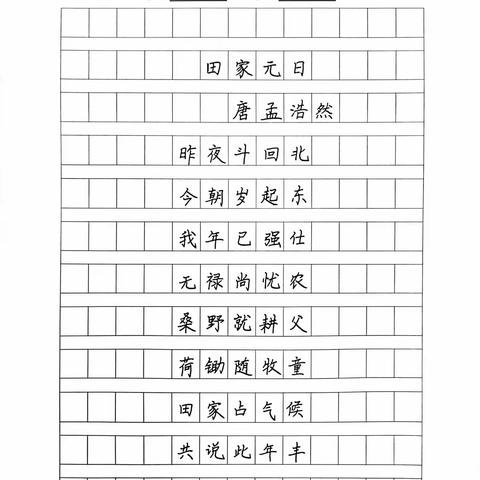 田家元日
唐孟浩然
昨夜斗回北
今朝岁起东
我年已强仕
无禄尚忧农
桑野就耕父
荷锄随牧童
田家占气候
共说此年丰